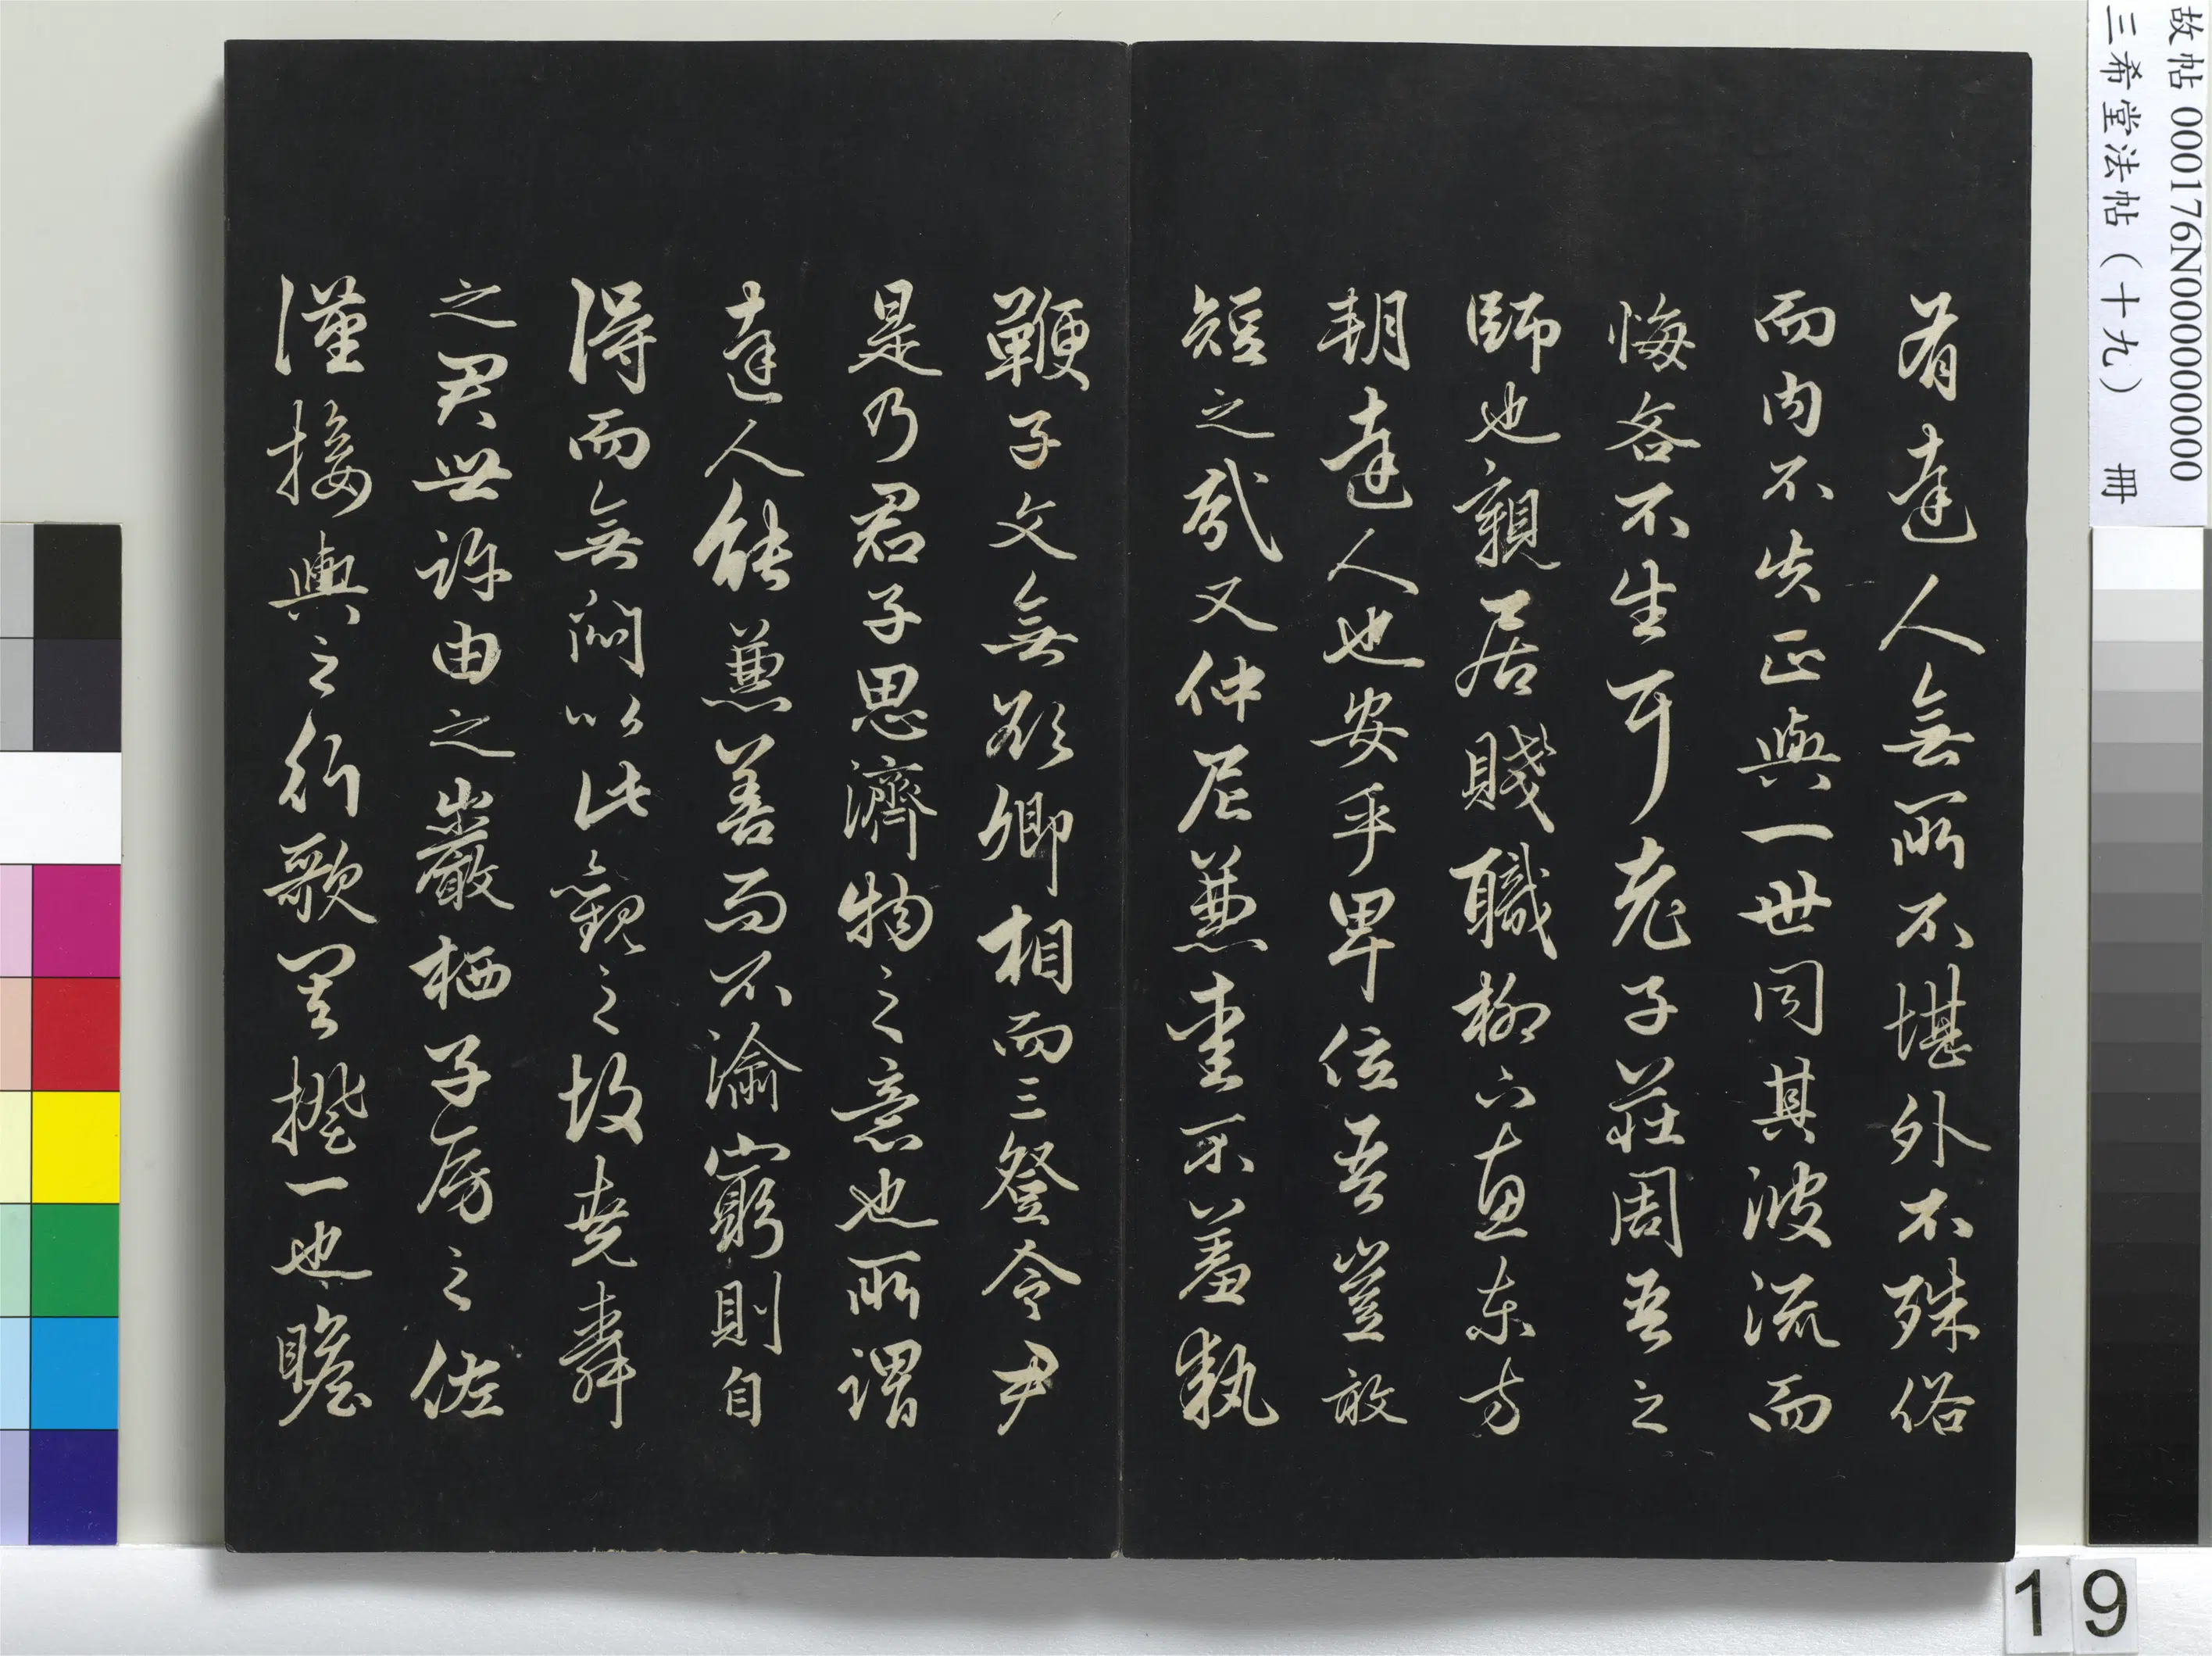 有達人無所不堪外不殊俗
而内不失正與一世同其波流而
悔吝不生耳老子莊周吾之
師也親居賤職柳下惠東方
朝達人也安乎卑位吾豈敢
短之哉又仲尼兼愛不羞執
鞭子文無欲卿相而三登令尹
是乃君子思濟物之意也所謂
達人能兼善而不渝窮則自
得而無悶以此觀之故堯舜
之君世許由之巖栖子房之佐
漢接輿之行歌其揆一也瞻
故帖 000176N000000000
三希堂法帖（十九） 冊
19